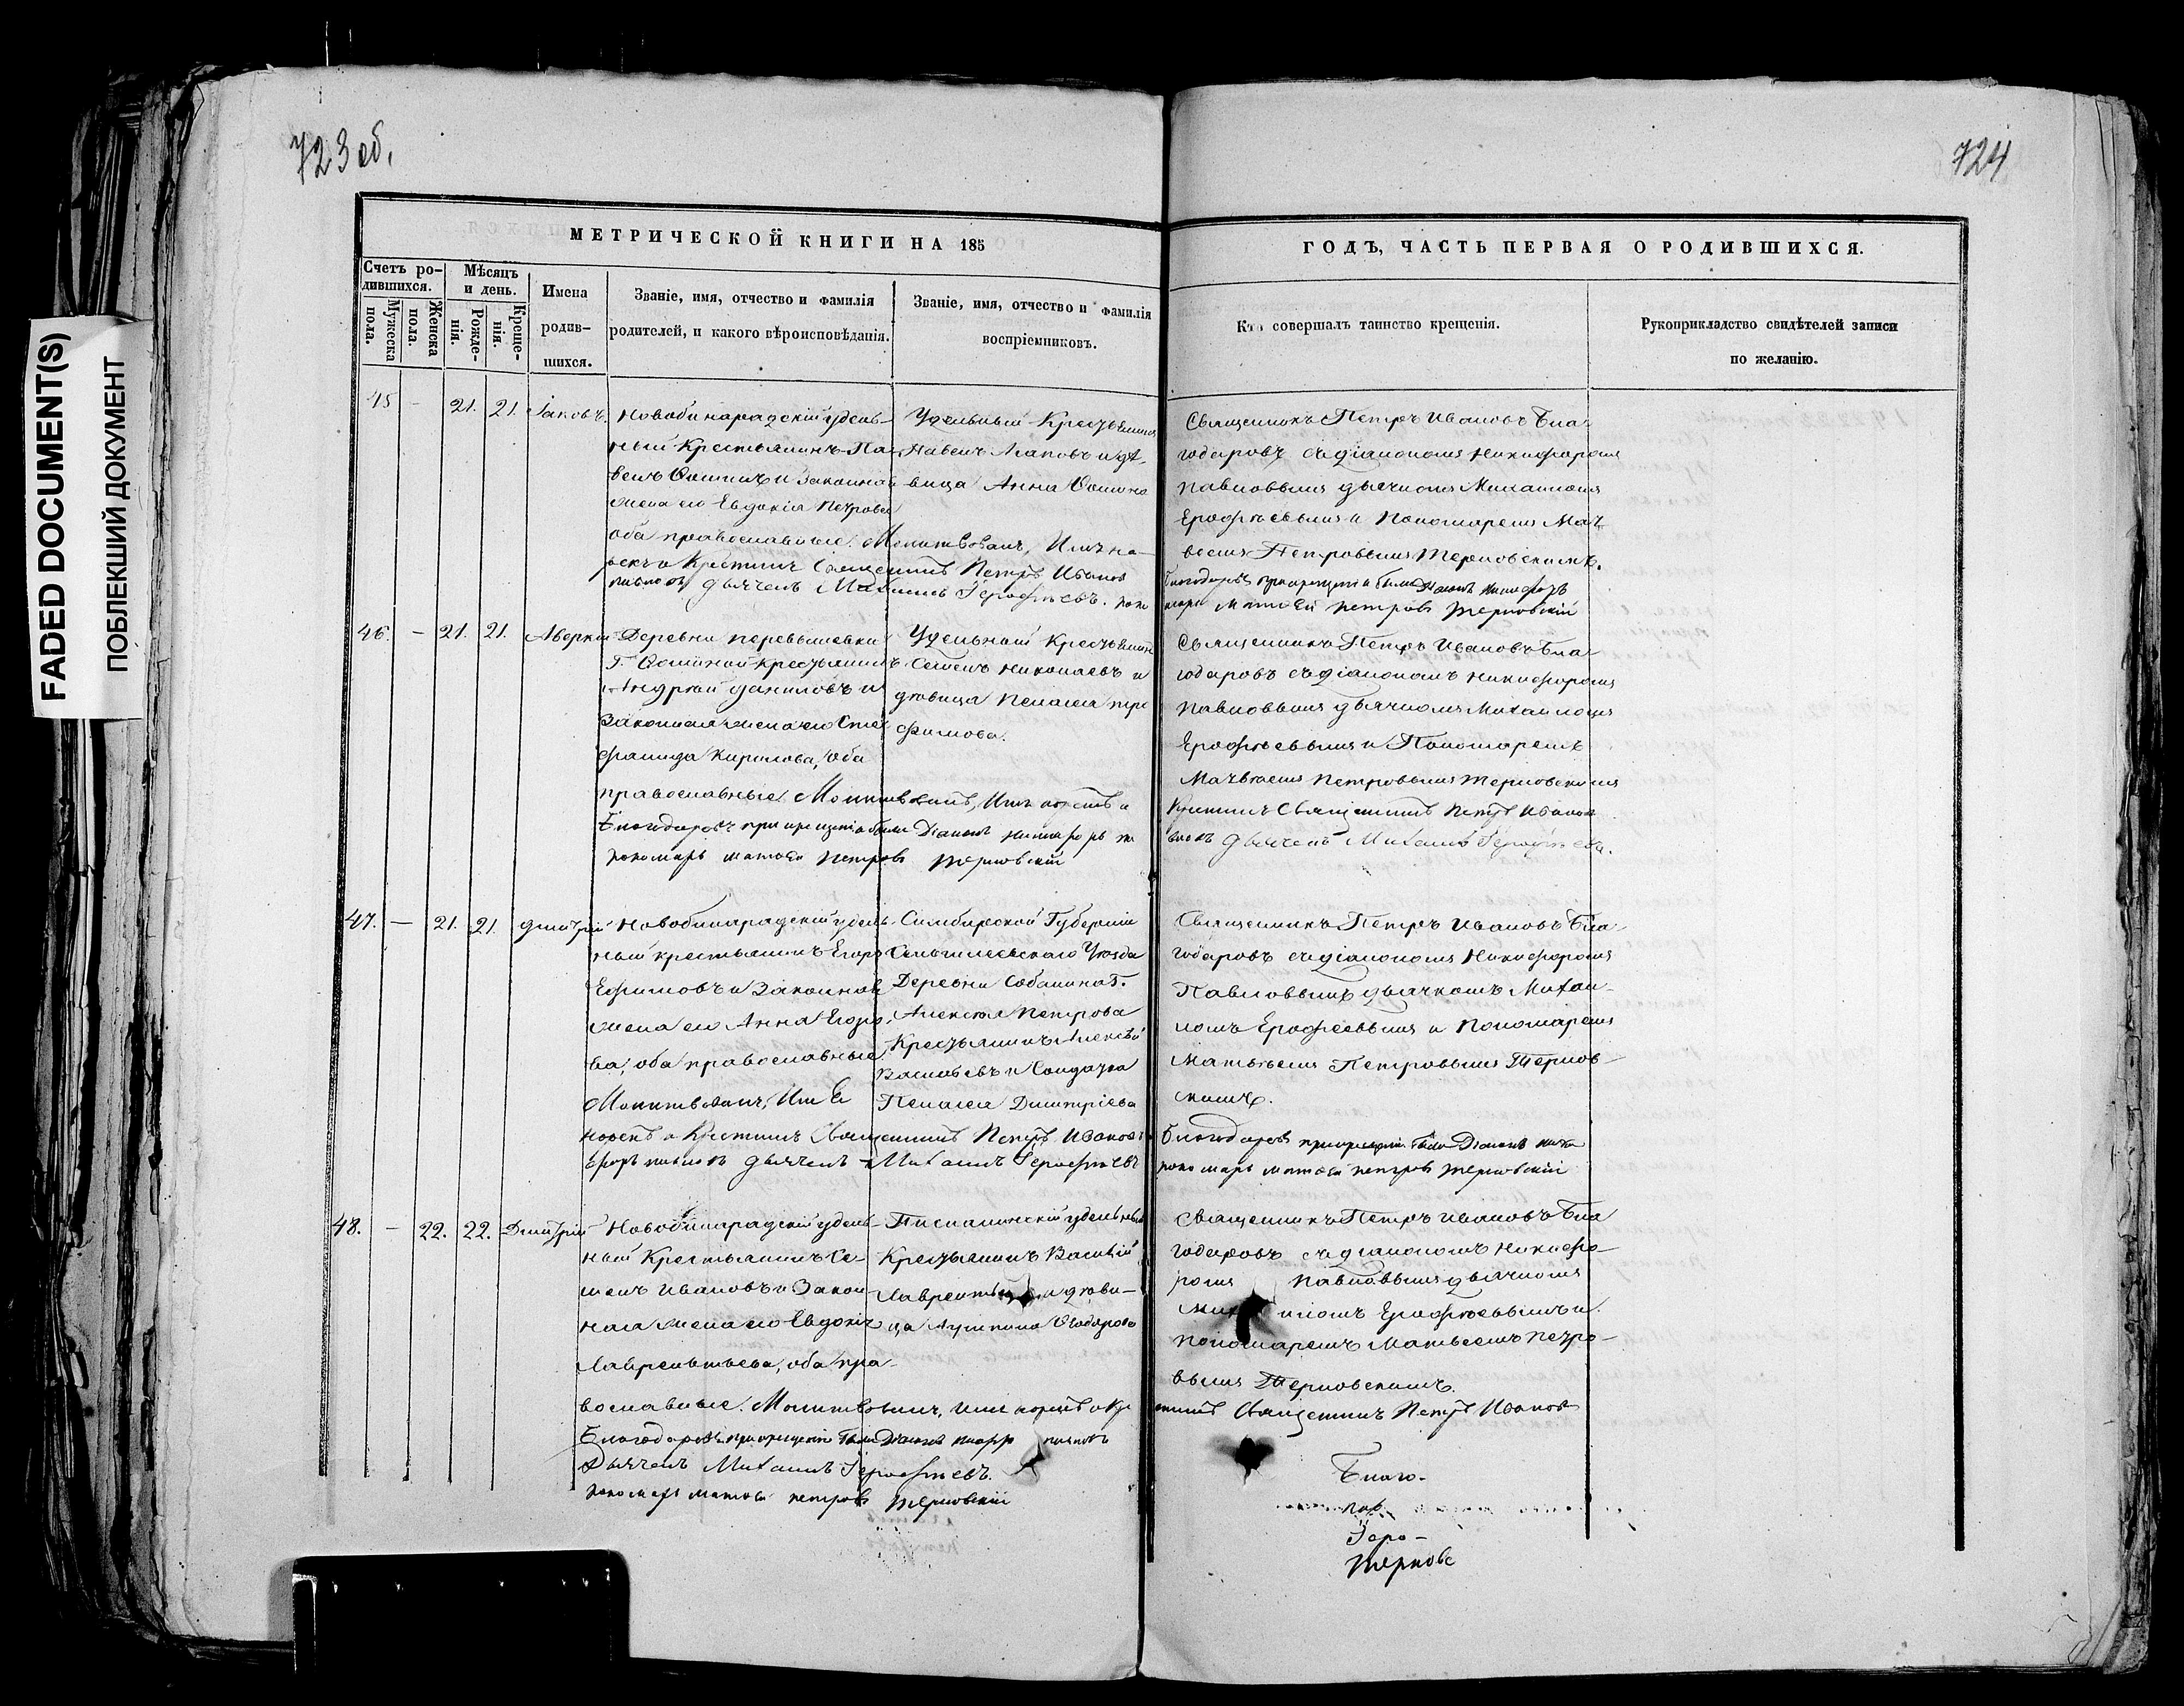 723 об.
724
FADED DOCUMENT(S)
ПОБЛЕКШИЙ ДОКУМЕНТ
МЕТРИЧЕСКОЙ КНИГИ НА 185
ГОДЪ, ЧАСТЬ ПЕРВАЯ О РОДИВШИХСЯ.
Счетъ ро-
дившихся.
Мужеска
пола.
Женска
пола.
Мѣсяцъ
и день.
Рожде-
нія.
Креще-
нія.
Имена
родив-
шихся.
Званіе, имя, отчество и фамилія
родителей, и какого вѣроисповѣданія.
Званіе, имя, отчество и фамилія
воспріемниковъ.
Кто совершалъ таинство крещенія.
Рукоприкладство свидѣтелей записи
по желанію.
45 - 21. 21. Іаковъ.
удѣль-
ный Крестьянинъ Па-
велъ и законная
жена его Евдокія Петрова
оба православные. Молитвовалъ, Имя на-
рекъ и Крестилъ Священникъ Петръ Иванов
дьячекъ Михаилъ Герофѣевъ. поно
Удельный Крестьянинъ
и дѣ-
вица Анна
Священникъ Петръ Ивановъ Бла-
годаровъ съ діакономъ Никифоромъ
Павловымъ дьячкомъ Михаиломъ
Ерофѣевымъ и Пономаремъ Мат-
веемъ Петровымъ Терновскимъ.
Благодаровъ при крещеніи были Діаконъ Никифоръ
марь Матвей Петровъ Терновскій
46. - 21. 21. Аверкій
Деревни
Г. крестьянинъ
Андрей Даниловъ и
Законная жена его Сте-
фанида Кирилова, оба
православные. Молитвовалъ, Имя нарекъ и
Благодаровъ при крещеніи были Діаконъ Никифоръ
пономарь Матвей Петровъ Терновскій
Удельный Крестьянинъ
Семенъ Николаевъ и
дѣвица Пелагея Тро-
фимова.
Священникъ Петръ Ивановъ Бла-
годаровъ съ діакономъ Никифоромъ
Павловымъ дьячкомъ Михаиломъ
Ерофѣевымъ и Пономаремъ
Матвѣемъ Петровымъ Терновскимъ
Крестилъ Священникъ Петръ Иванов
дьячекъ Михаилъ Герофѣевъ.
47. - 21. 21. Дмитрій
удель-
ный крестьянинъ Егоръ
Ефимовъ и Законная
жена его Анна Егоро-
ва, оба православные.
Молитвовалъ, Имя
нарекъ и Крестилъ Священникъ Петръ Ивановъ
форъ Павловъ дьячекъ Михаилъ Герофѣевъ
Симбирской Губерніи
Сенгилеевскаго Уезда
Деревни
Петрова
Крестьянинъ Алексѣй
Васильевъ и Солдатка
Пелагея Димитріева
Священникъ Петръ Ивановъ Бла-
годаровъ съ діакономъ Никифоромъ
Павловымъ дьячкомъ Михаи-
ломъ Ерофеевымъ и Пономаремъ
Матвѣемъ Петровымъ Тернов-
скимъ.
Благодаровъ при крещеніи были Діаконъ Ники
пономарь Матвей Петровъ Терновскій
48. - 22. 22. Дмитрій
удель-
ный Крестьянинъ Се-
менъ Ивановъ и Закон-
ная жена его Евдокія
Лаврентьева, оба пра-
вославные. Молитвовалъ, имя нарекъ и Кре
Благодаровъ при крещеніи были Діаконъ
Дьячекъ Михаилъ Герофѣевъ.
пономарь Матвей Петровъ Терновскій
удельный
Крестьянинъ Василій
и дѣви-
ца
Священникъ Петръ Ивановъ Бла
годаровъ съ діакономъ Никифо-
ромъ Павловымъ дьячкомъ
ломъ Ерофѣевымъ и
пономаремъ Матвеемъ Петро-
вымъ Терновскимъ.
стилъ Священникъ Петръ Иванов
Благо-
пав
Геро-
Терновс